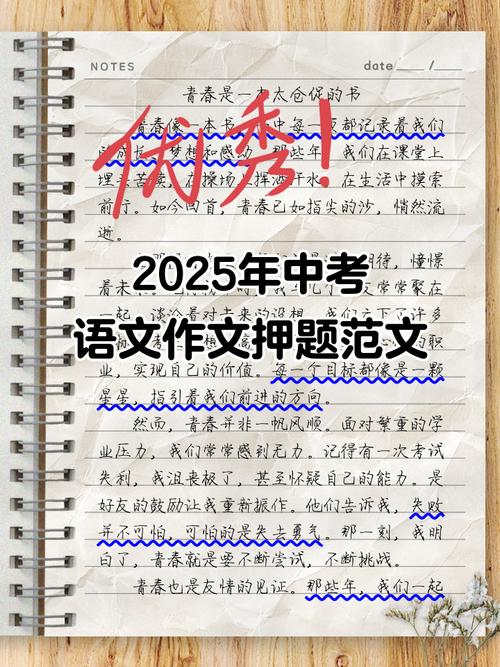 NOTES
date ____ / ____
青春是一本太仓促的书
青春像一本书 中每 都记录着我们
成长 梦想和感动 那些年 我们在课堂上
埋 苦读 在操场 挥洒汗水 在生活中摸索
前行。如今回首，青春已如指尖的沙，悄然流
逝。
优秀！
期待，憧憬
着未 常常聚在
2025年中考
一起 谈论着对未来的设想 我们立下了许多
语文作文押题范文
业，实现自己的价值。每一个目标都像是一颗
星星，指引着我们前进的方向。
然而，青春并非一帆风顺。面对繁重的学
业压力，我们常常感到无力。记得有一次考试
失利，我沮丧极了，甚至怀疑自己的能力。是
好友的鼓励让我重新振作。他们告诉我，失败
并不可怕，可怕的是失去勇气。那一刻，我明
白了，青春就是要不断尝试，不断挑战。
青春也是友情的见证。那些年，我们一起